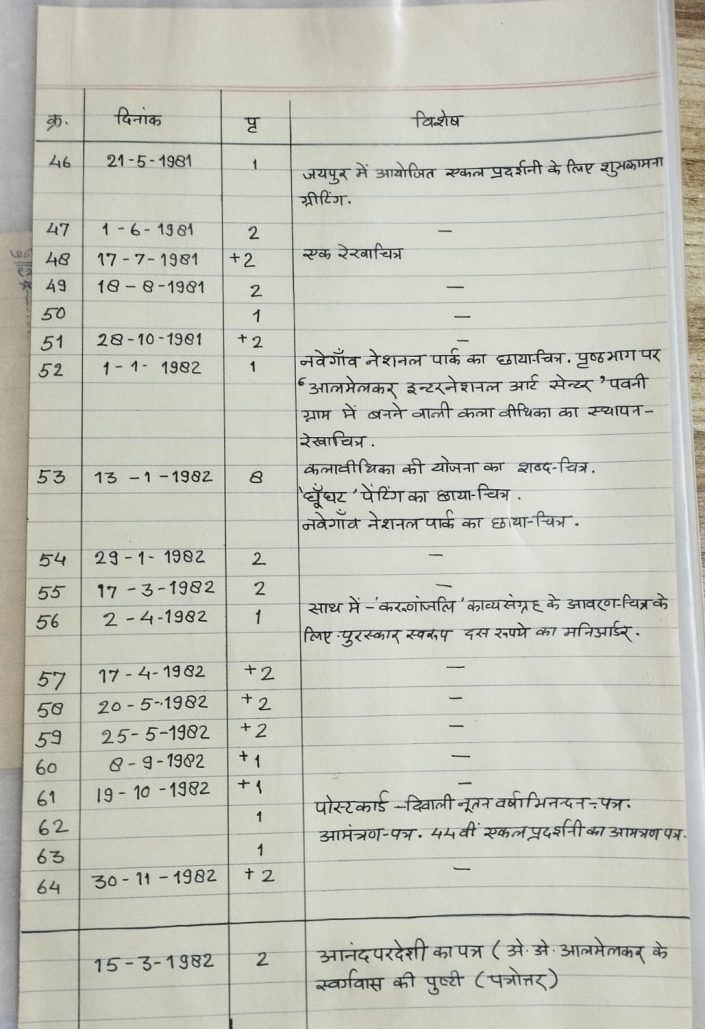 क्र. दिनांक पृ विशेष
46 21-5-1981 1 जयपुर में आयोजित एकल प्रदर्शनी के लिए शुभकामना
ग्रीटिंग.
47 1-6-1981 2 —
48 17-7-1981 +2 एक रेखाचित्र
49 18-8-1981 2 —
50 1 —
51 28-10-1981 +2 —
52 1-1-1982 1 नवेगाँव नेशनल पार्क का छायाचित्र. पृष्ठभाग पर
'आलमेलकर इन्टरनेशनल आर्ट सेन्टर' पवनी
ग्राम में बनने वाली कला वीथिका का स्थापन-
रेखाचित्र.
53 13-1-1982 8 कलावीथिका की योजना का शब्द-चित्र.
'घूँघट' पेंटिंग का छाया-चित्र.
नवेगाँव नेशनल पार्क का छाया-चित्र.
54 29-1-1982 2 —
55 17-3-1982 2 —
56 2-4-1982 1 साथ में-'करुणांजलि' काव्यसंग्रह के आवरण-चित्र के
लिए पुरस्कार स्वरूप दस रुपये का मनिआर्डर.
57 17-4-1982 +2 —
58 20-5-1982 +2 —
59 25-5-1982 +2 —
60 8-9-1982 +1 —
61 19-10-1982 +1 —
62 1 पोस्टकार्ड -दिवाली नूतन वर्षाभिनन्दन-पत्र.
63 1 आमंत्रण-पत्र. 44वीं एकल प्रदर्शनी का आमत्रण पत्र.
64 30-11-1982 +2 —
15-3-1982 2 आनंद परदेशी का पत्र (अे. अे. आलमेलकर के
स्वर्गवास की पुष्टी (पत्रोत्तर)